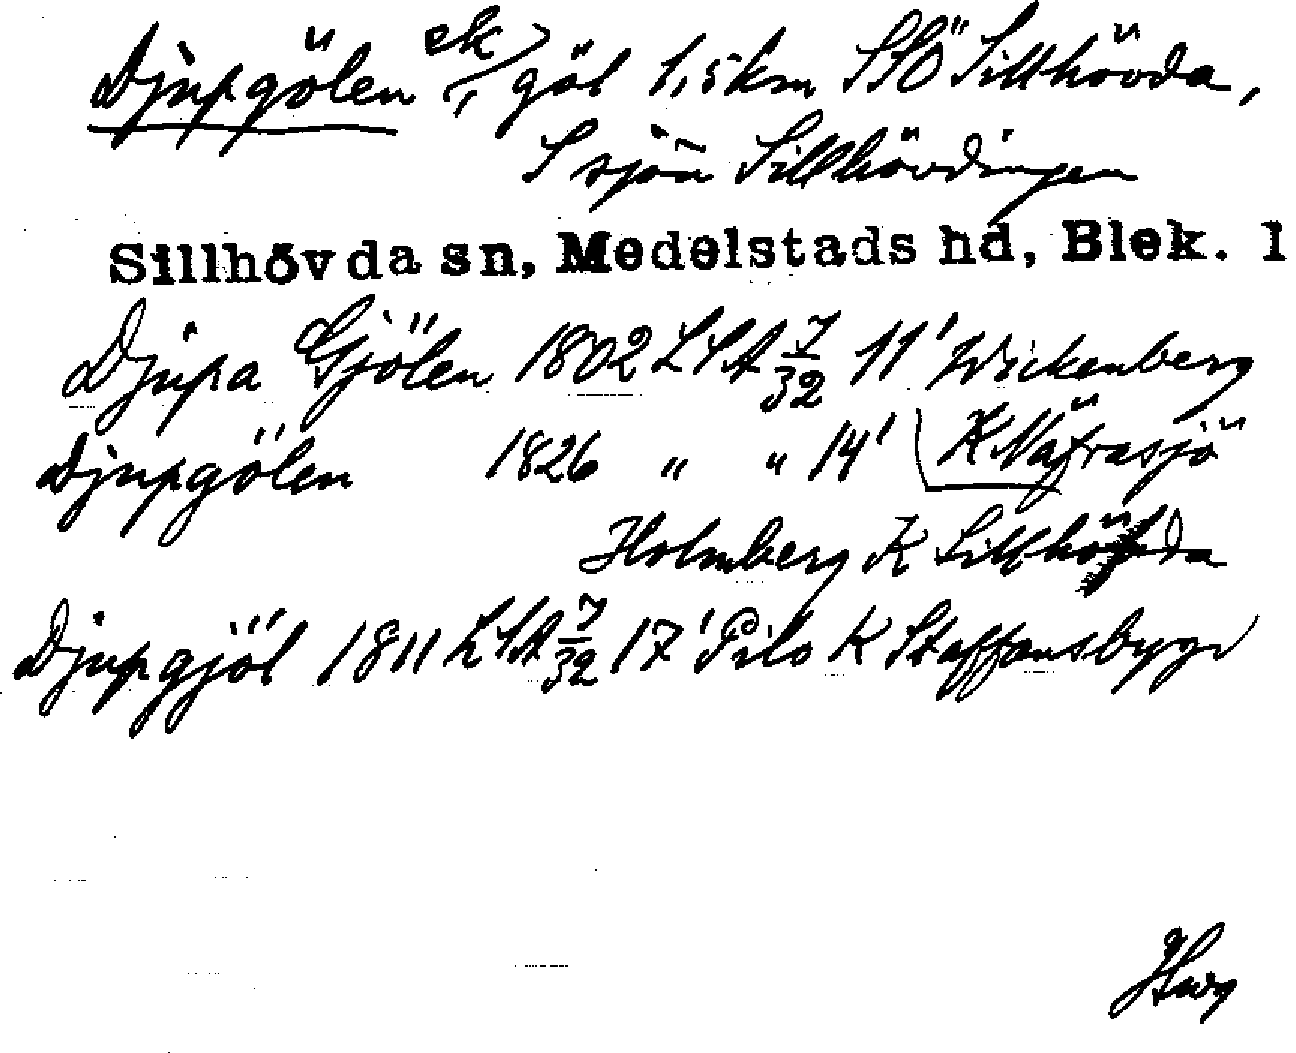 Djupgölen ek, göl 1,5 km SSÖ Sillhövda,
S sjön Sillhövdingen
Sillhövda sn, Medelstads hd, Blek. 1
Djupa Gjölen 1802 LSA 7/32 11' Wickenberg
Djupgölen 1826 " " 14' K Näfrasjö
Holmberg K Sillhöfda
Djupgjöl 1811 LSA 7/32 17' Pilo K Staffansbygd